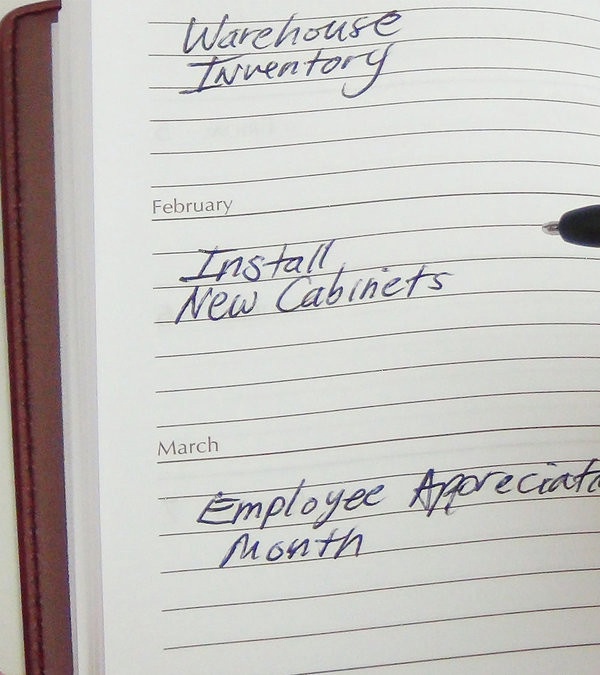 Warehouse
Inventory
February
Install
New Cabinets
March
Employee Appreciat
Month